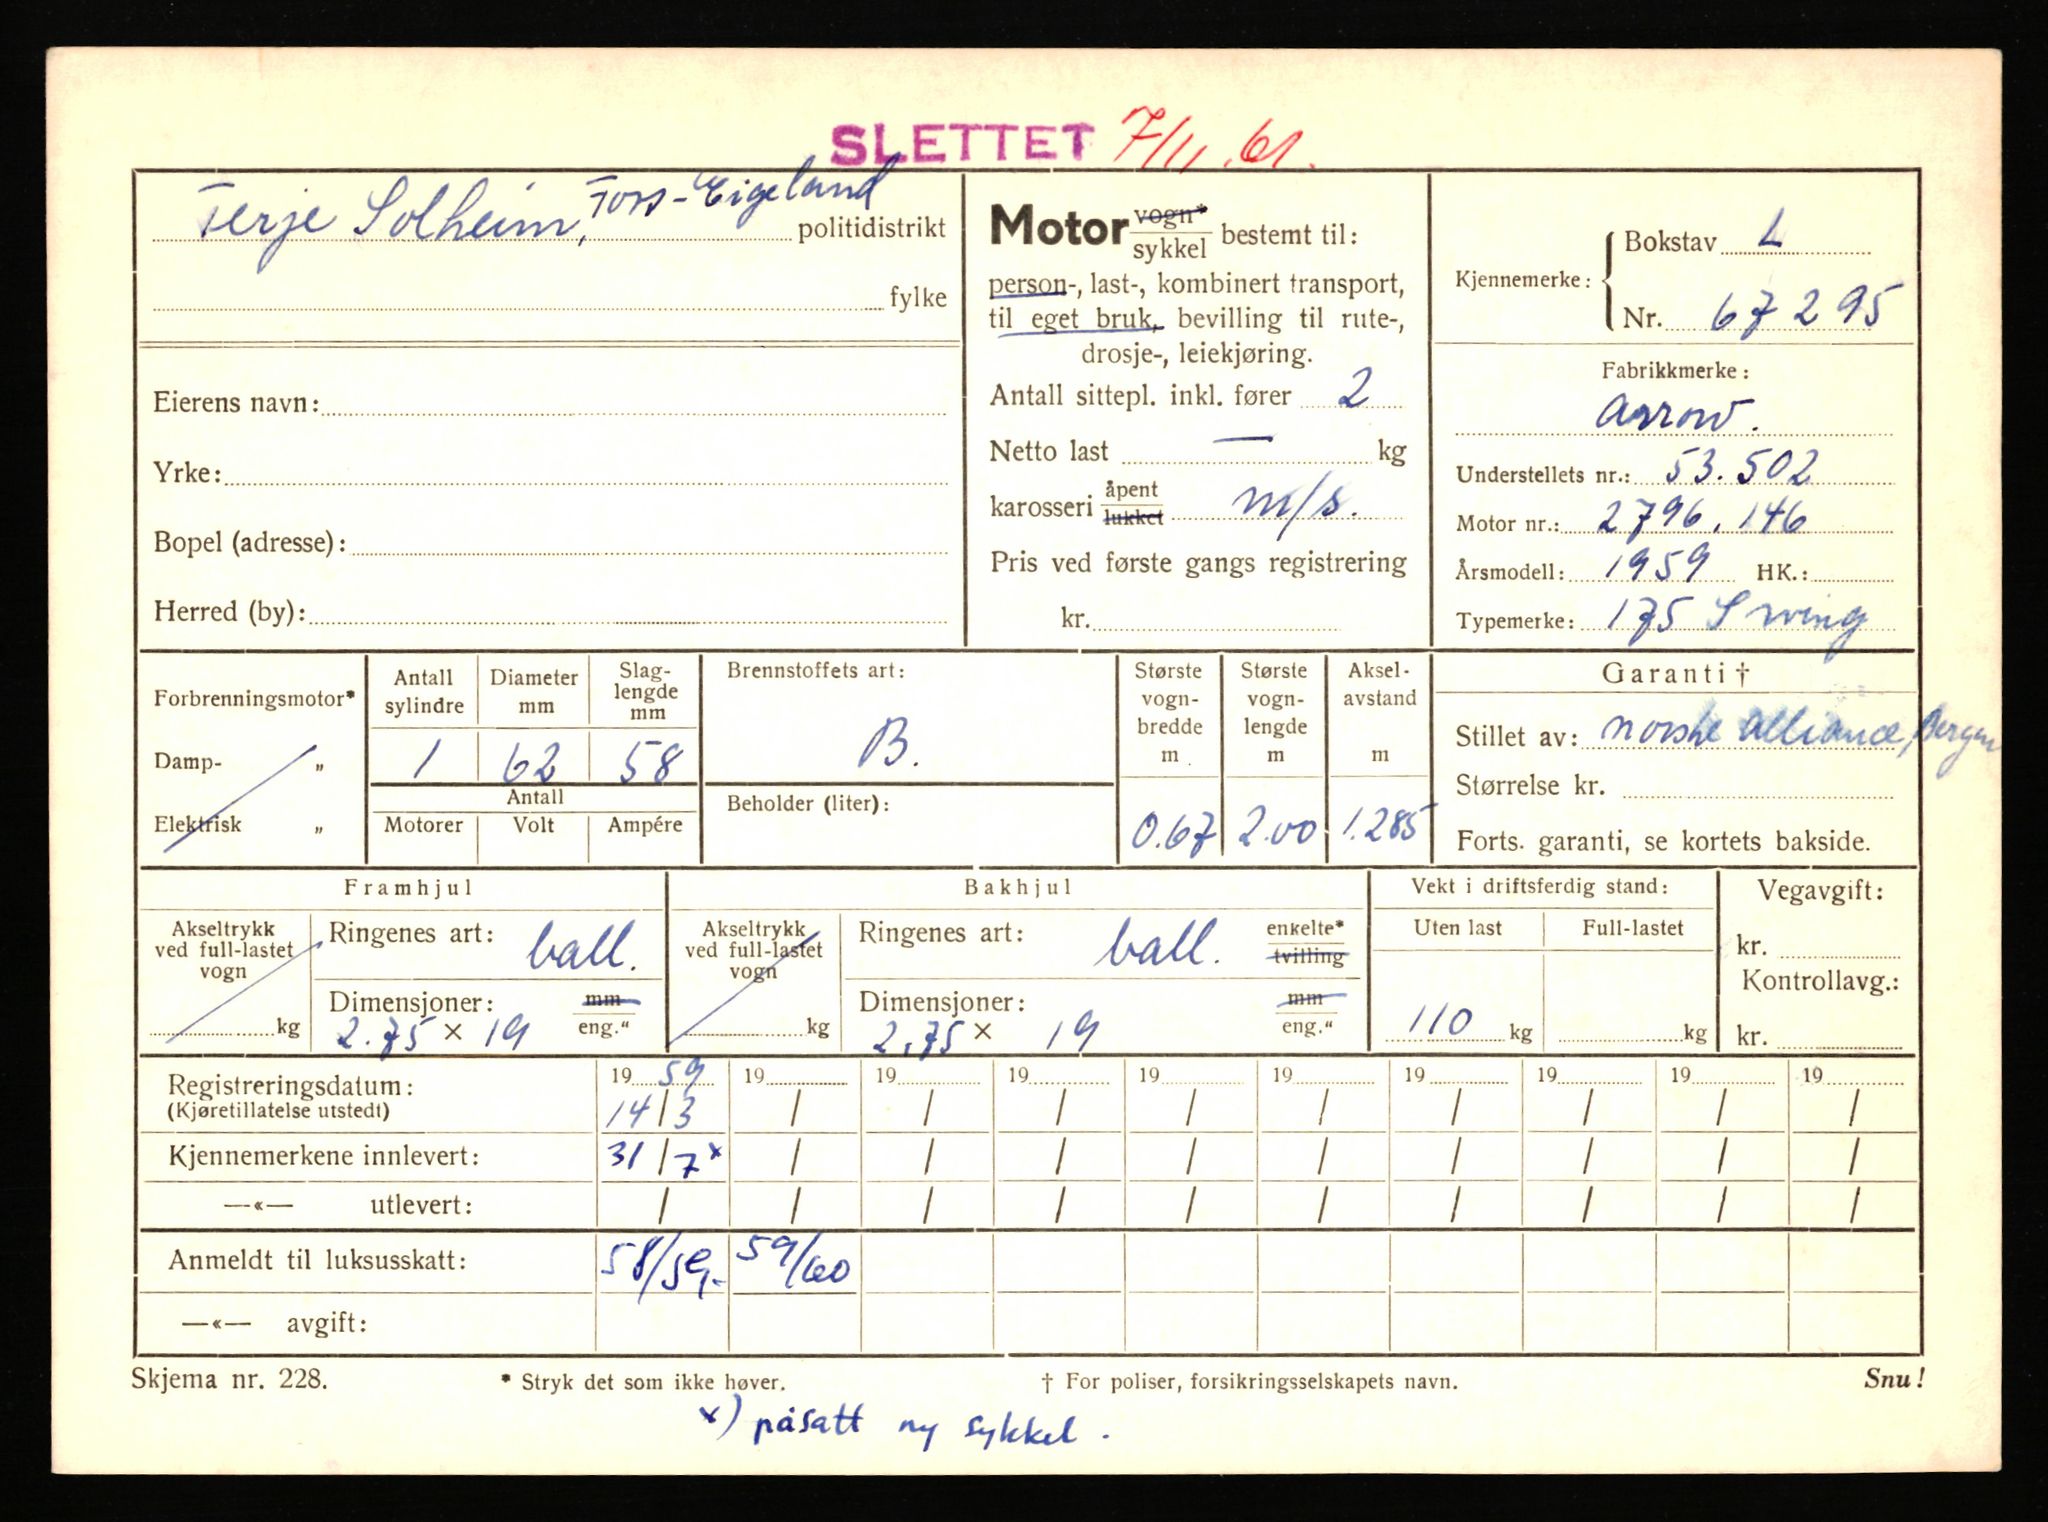 SLETTET 7/11.61.
Terje Solheim, Foss-Eigeland politidistrikt
fylke
Eierens navn:
Yrke:
Bopel (adresse):
Herred (by):
Motor vogn* / sykkel bestemt til:
person-, last-, kombinert transport,
til eget bruk, bevilling til rute-,
drosje-, leiekjøring.
Antall sittepl. inkl. fører 2
Netto last — kg
karosseri åpent / lukket m/s.
Pris ved første gangs registrering
kr.
Kjennemerke: Bokstav L
Nr. 67295
Fabrikkmerke:
Arrow.
Understellets nr.: 53.502
Motor nr.: 2796.146
Årsmodell: 1959 HK.:
Typemerke: 175 Swing
Forbrenningsmotor*
Damp- „
Elektrisk „
Antall sylindre Diameter mm Slag-lengde mm
1 62 58
Antall
Motorer Volt Ampére
Brennstoffets art:
B.
Beholder (liter):
Største vogn-bredde m Største vogn-lengde m Aksel-avstand m
0.67 2.00 1.285
Garanti †
Stillet av: Norske Alliance, Bergen
Størrelse kr.
Forts. garanti, se kortets bakside.
Framhjul
Akseltrykk ved full-lastet vogn kg
Ringenes art: ball.
Dimensjoner: mm / eng."
2.75 × 19
Bakhjul
Akseltrykk ved full-lastet vogn kg
Ringenes art: ball. enkelte* / tvilling
Dimensjoner: mm / eng."
2.75 × 19
Vekt i driftsferdig stand:
Uten last Full-lastet
110 kg kg
Vegavgift:
kr.
Kontrollavg.:
kr.
Registreringsdatum: 19 59 19 19 19 19 19 19 19 19 19
(Kjøretillatelse utstedt) 14/3 / / / / / / / / /
Kjennemerkene innlevert: 31/7 x / / / / / / / / /
—«— utlevert: / / / / / / / / / /
Anmeldt til luksusskatt: 58/59.- 59/60
—«— avgift:
Skjema nr. 228. * Stryk det som ikke høver. † For poliser, forsikringsselskapets navn. Snu!
x) påsatt ny sykkel.